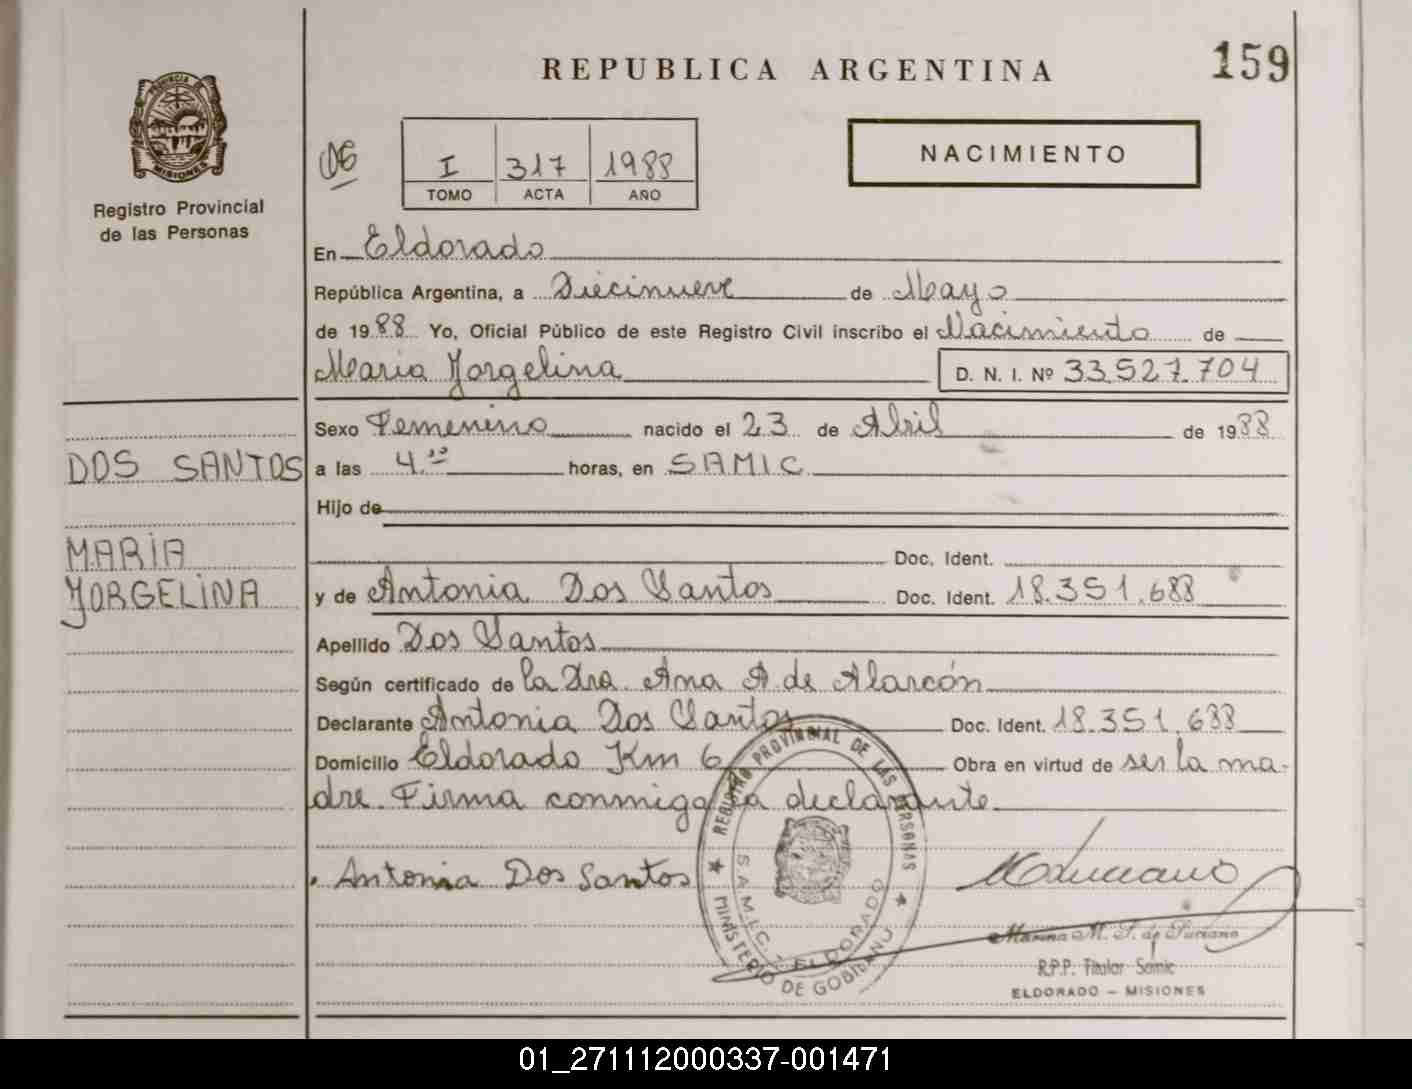 REPUBLICA ARGENTINA
159
PROVINCIA DE
MISIONES
Registro Provincial
de las Personas
I 317 1988
TOMO ACTA AÑO
NACIMIENTO
En Eldorado
República Argentina, a Diecinueve de Mayo
de 1988 Yo, Oficial Público de este Registro Civil inscribo el Nacimiento de
Maria Jorgelina D. N. I. Nº 33.527.704
Sexo Femenino nacido el 23 de Abril de 1988
DOS SANTOS
a las 4.00 horas, en SAMIC
Hijo de
MARIA
JORGELINA
Doc. Ident.
y de Antonia Dos Santos Doc. Ident. 18.351.688
Apellido Dos Santos
Según certificado de la Dra. Ana A. de Alarcón
Declarante Antonia Dos Santos Doc. Ident. 18.351.688
Domicilio Eldorado Km 6 Obra en virtud de ser la ma-
dre. Firma conmigo la declarante.
Antonia Dos Santos
REGISTRO PROVINCIAL DE LAS PERSONAS
S.A.M.I.C. - ELDORADO
MINISTERIO DE GOBIERNO
Marina M. de
R.P.P. Titular Samic
ELDORADO - MISIONES
01_271112000337-001471